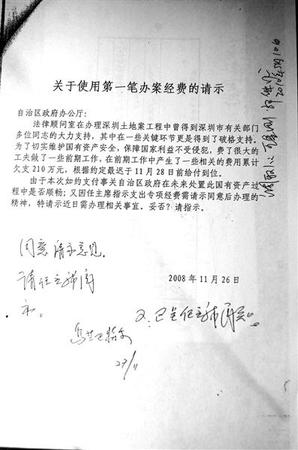 关于使用第一笔办案经费的请示
自治区政府办公厅：
法律顾问室在办理深圳土地案工程中曾得到深圳市有关部门
多位同志的大力支持，其中在一些关键环节更是得到了破格支持。
为了切实维护国有资产安全，保障国家利益不受侵犯，费了很大的
工夫做了一些前期工作，在前期工作中产生了一些相关的费用累计
欠支 210 万元，根据约定最迟于 11 月 28 日前给付到位。
由于本次如约支付事关自治区政府在未来处置此国有资产过
程中是否顺畅；又因任主席指示支出专项经费需请示同意后办理的
精神，特请示近日需办理相关事宜。妥否？请指示。
2008 年 11 月 26 日
同意请示意见
请任主席阅
示。
乌兰巴特尔
27/11